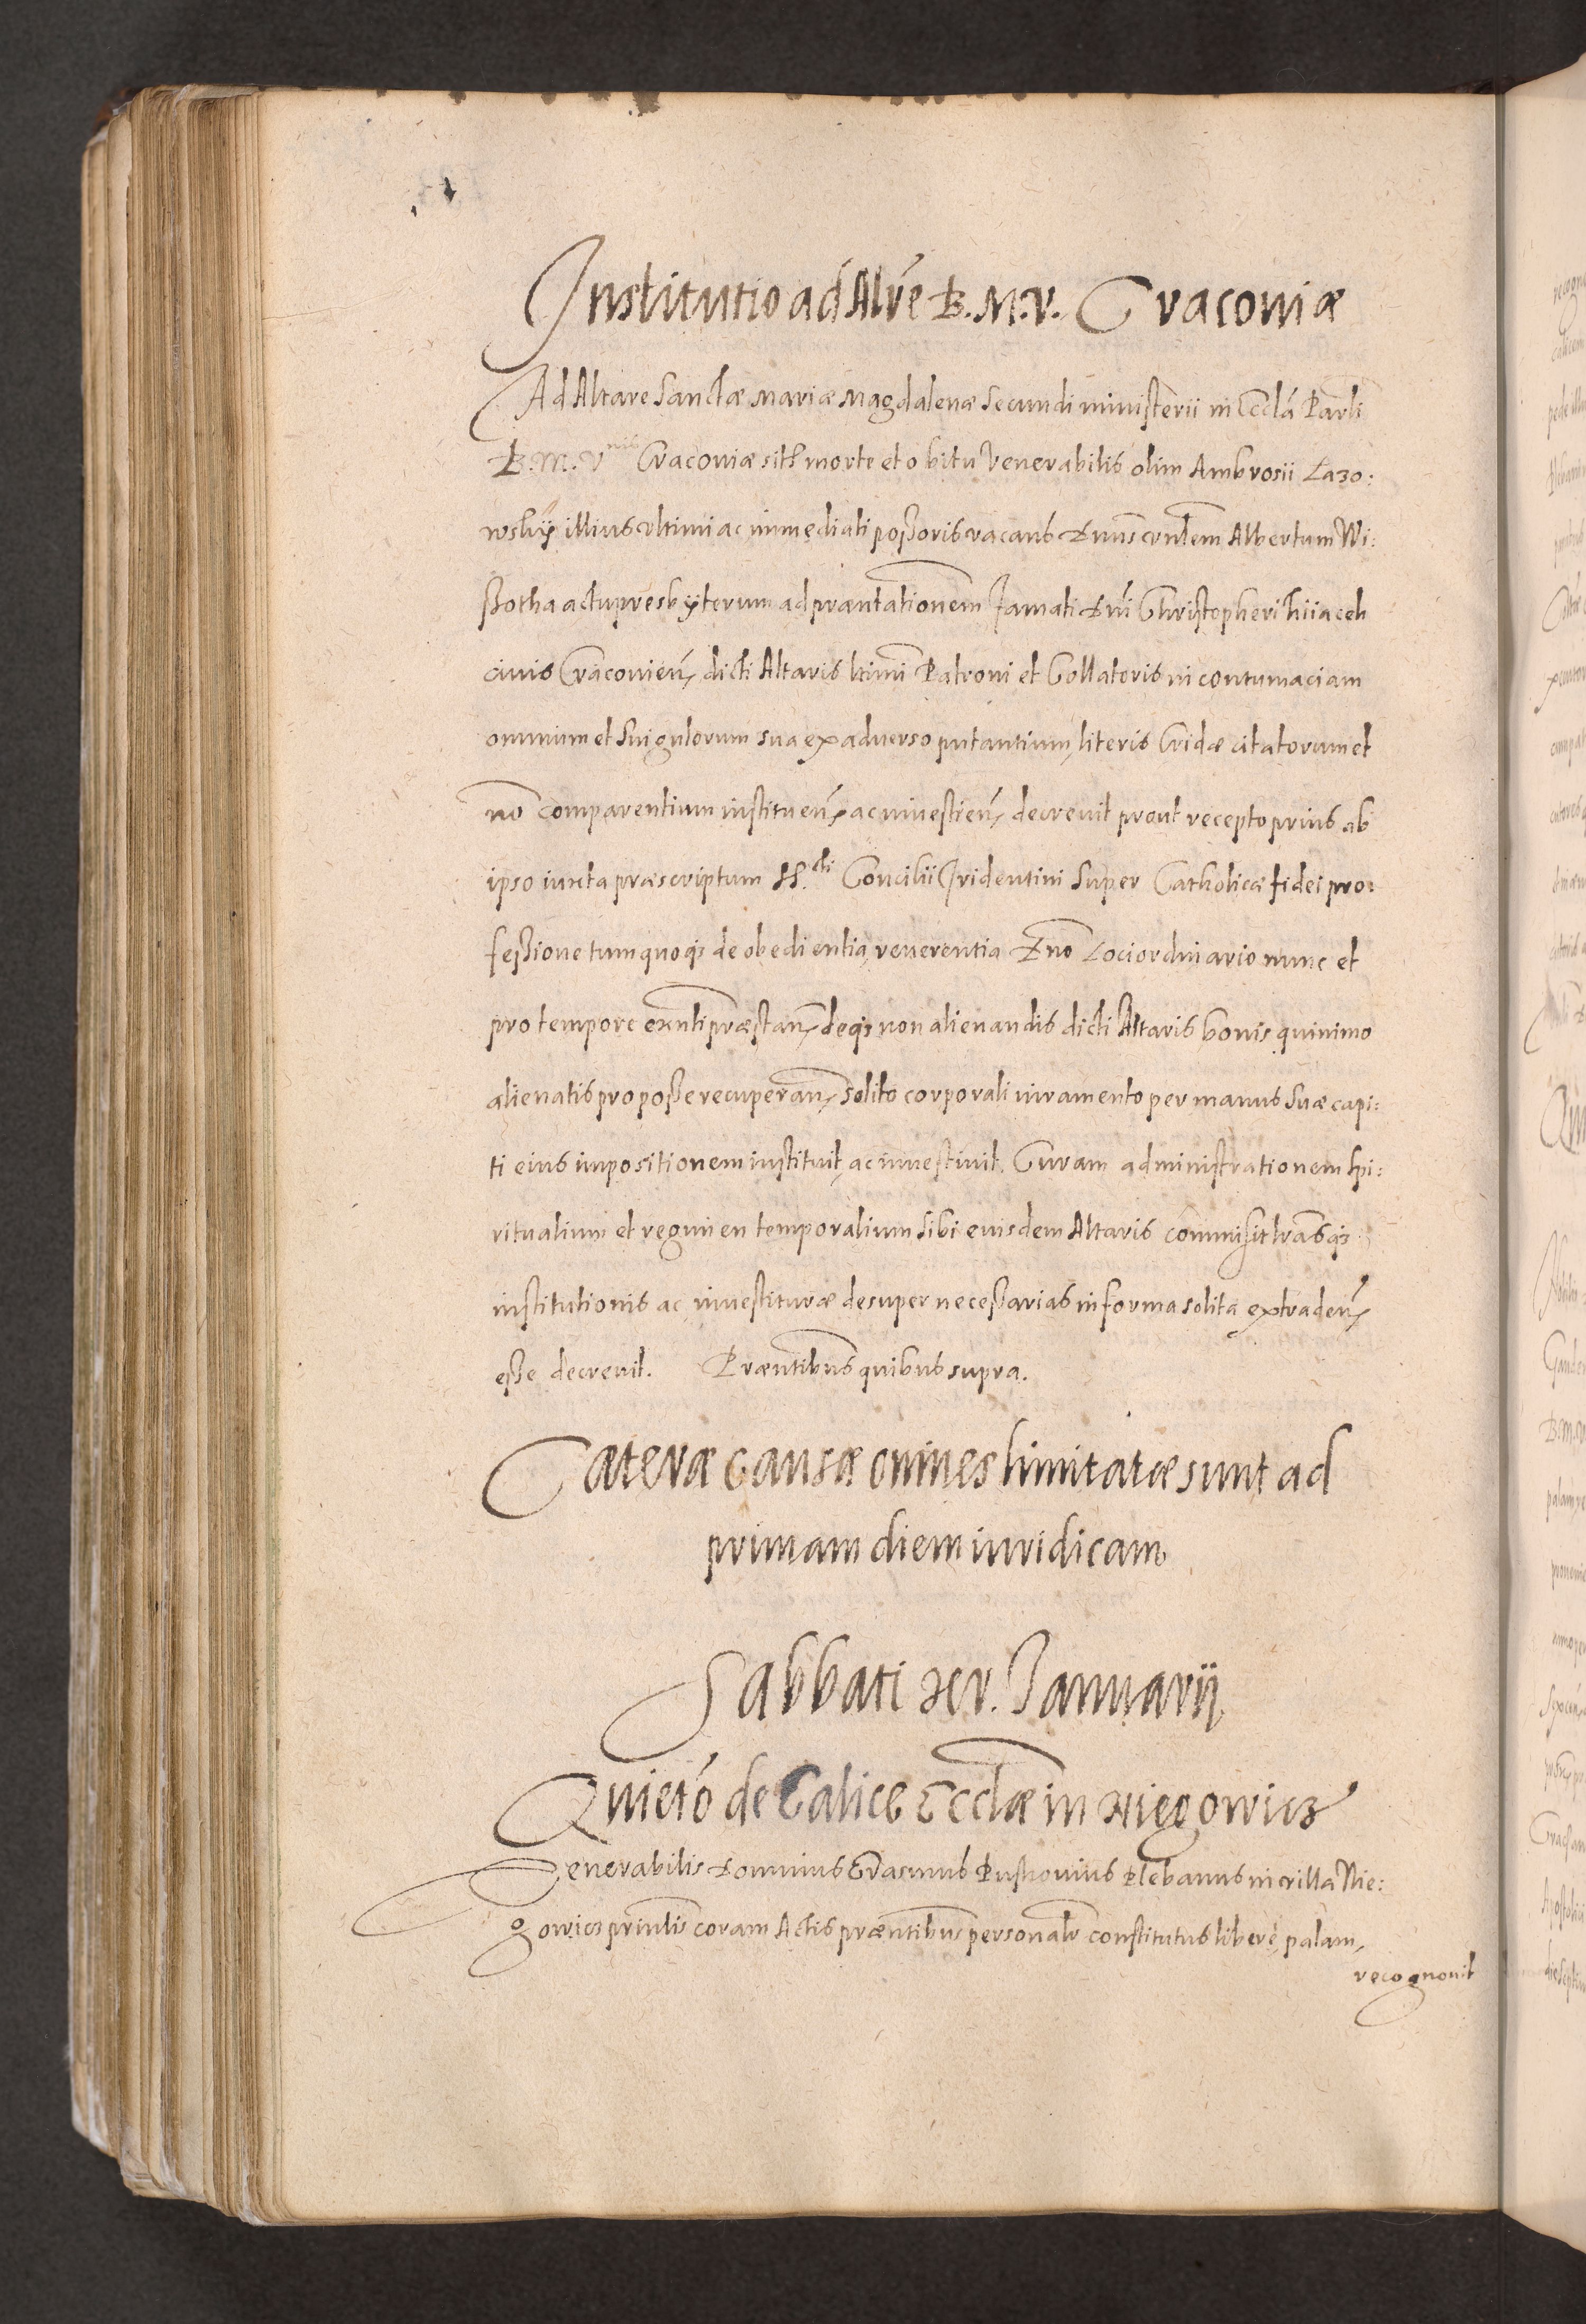 Institutio ad Altre B. M. V. Cracoviæ
Ad Altare Sanctæ Mariæ Magdalenæ Secundi ministerii in Eccla Parli
B. M. V nis Cracoviæ site morte et obitu Venerabilis olim Ambrosii Lazo:
wskij illius ultimi ac immediati poßoris vacans Dnus Albertum Wi:
ßotha actu presbyterum ad præntationem Famati Dni Christopheri
civis Cracovien dicti Altaris ltimi Patroni et Collatoris in contumaciam
omnium et Singulorum sua ex adverso putantium, literis Cridæ citatorum et
no comparentium instituen ac investien decrevit prout recepto prius ab
ipso iuxta præscriptum Concilii Tridentini Super Catholicæ fidei pro:
feßione tum quoq3 de obedientia, reverentia Dno Loci ordinario nunc et
pro tempore exnti præstan deq3 non alienandis dicti Altaris bonis quinimo
alienatis pro poße recuperan, solito corporali iuramento per manus Suæ capi:
ti eius impositionem instituit, ac investivit. Curam administrationem Spi:
ritualium et regimen temporalium Sibi eiusdem Altaris commisit lrasq3
institutionis ac investituræ desuper neceßarias in forma solita extraden
eße decrevit. Præntibus quibus supra.
Cæteræ Causæ omnes limitatæ sunt ad
primam diem iuridicam
Sabbati Januarij
Quieto de Calice Ecclæ in Niegowicz
Venerabilis Dominus Erasmus Plebanus in villa Nie:
gowicz prinlis coram Actis præntibus personalr constitutus libere, palam,
recognovit